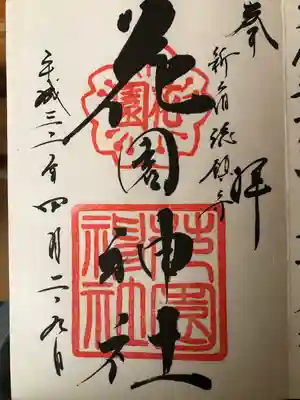 奉拝
新宿総鎮守
花園神社
花園
花園神社
平成三十一年四月二十九日